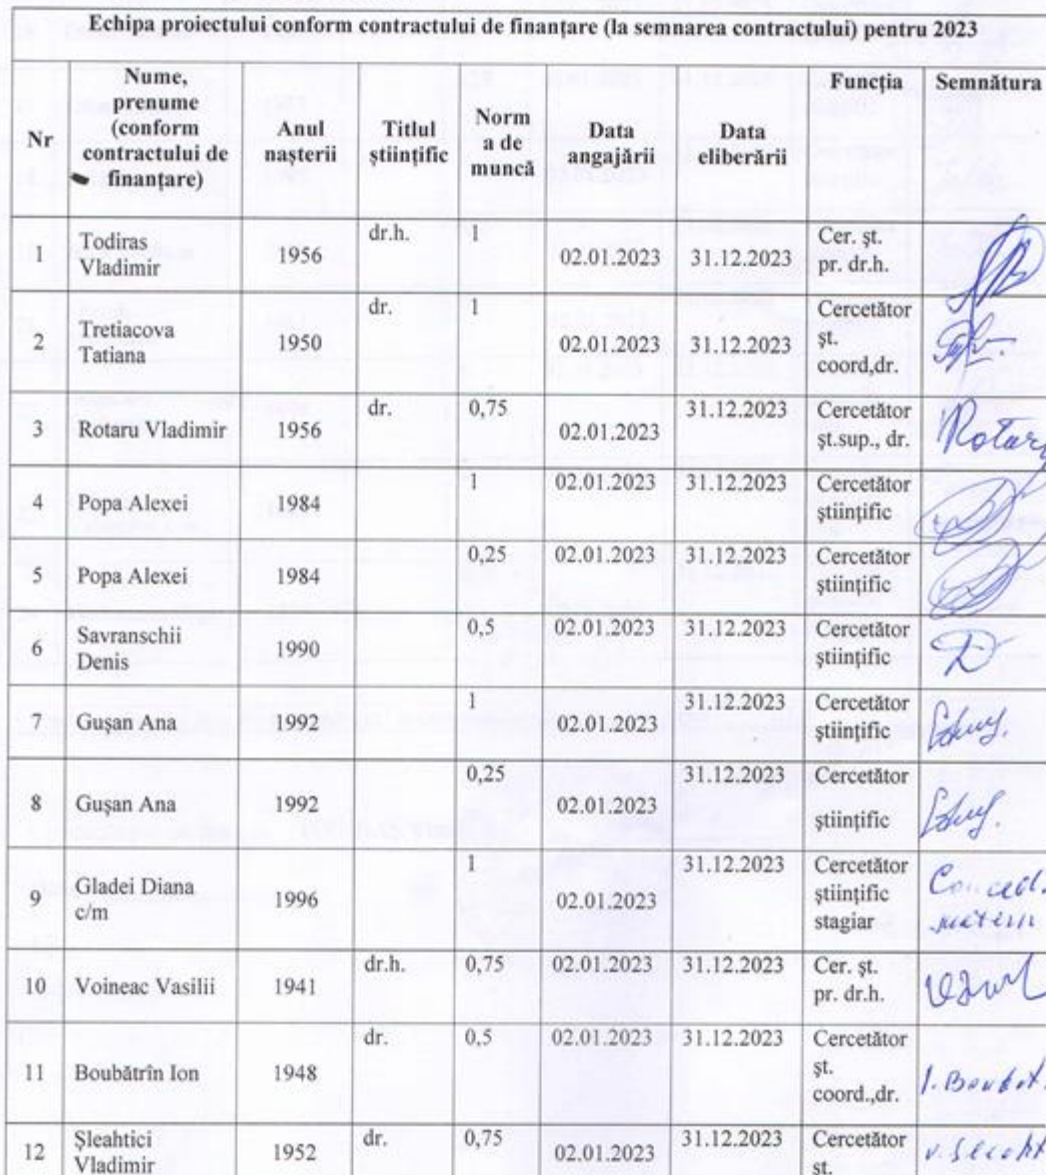 Echipa proiectului conform contractului de finanțare (la semnarea contractului) pentru 2023
Nr Nume, prenume (conform contractului de finanțare) Anul nașterii Titlul științific Norm a de muncă Data angajării Data eliberării Funcția Semnătura
1 Todiras Vladimir 1956 dr.h. 1 02.01.2023 31.12.2023 Cer. șt. pr. dr.h.
2 Tretiacova Tatiana 1950 dr. 1 02.01.2023 31.12.2023 Cercetător șt. coord,dr.
3 Rotaru Vladimir 1956 dr. 0,75 02.01.2023 31.12.2023 Cercetător șt.sup., dr. Rotaru
4 Popa Alexei 1984 1 02.01.2023 31.12.2023 Cercetător științific
5 Popa Alexei 1984 0,25 02.01.2023 31.12.2023 Cercetător științific
6 Savranschii Denis 1990 0,5 02.01.2023 31.12.2023 Cercetător științific
7 Gușan Ana 1992 1 02.01.2023 31.12.2023 Cercetător științific
8 Gușan Ana 1992 0,25 02.01.2023 31.12.2023 Cercetător științific
9 Gladei Diana c/m 1996 1 02.01.2023 31.12.2023 Cercetător științific stagiar Conced. matern
10 Voineac Vasilii 1941 dr.h. 0,75 02.01.2023 31.12.2023 Cer. șt. pr. dr.h.
11 Boubătrîn Ion 1948 dr. 0,5 02.01.2023 31.12.2023 Cercetător șt. coord.,dr.
12 Șleahtici Vladimir 1952 dr. 0,75 02.01.2023 31.12.2023 Cercetător șt.